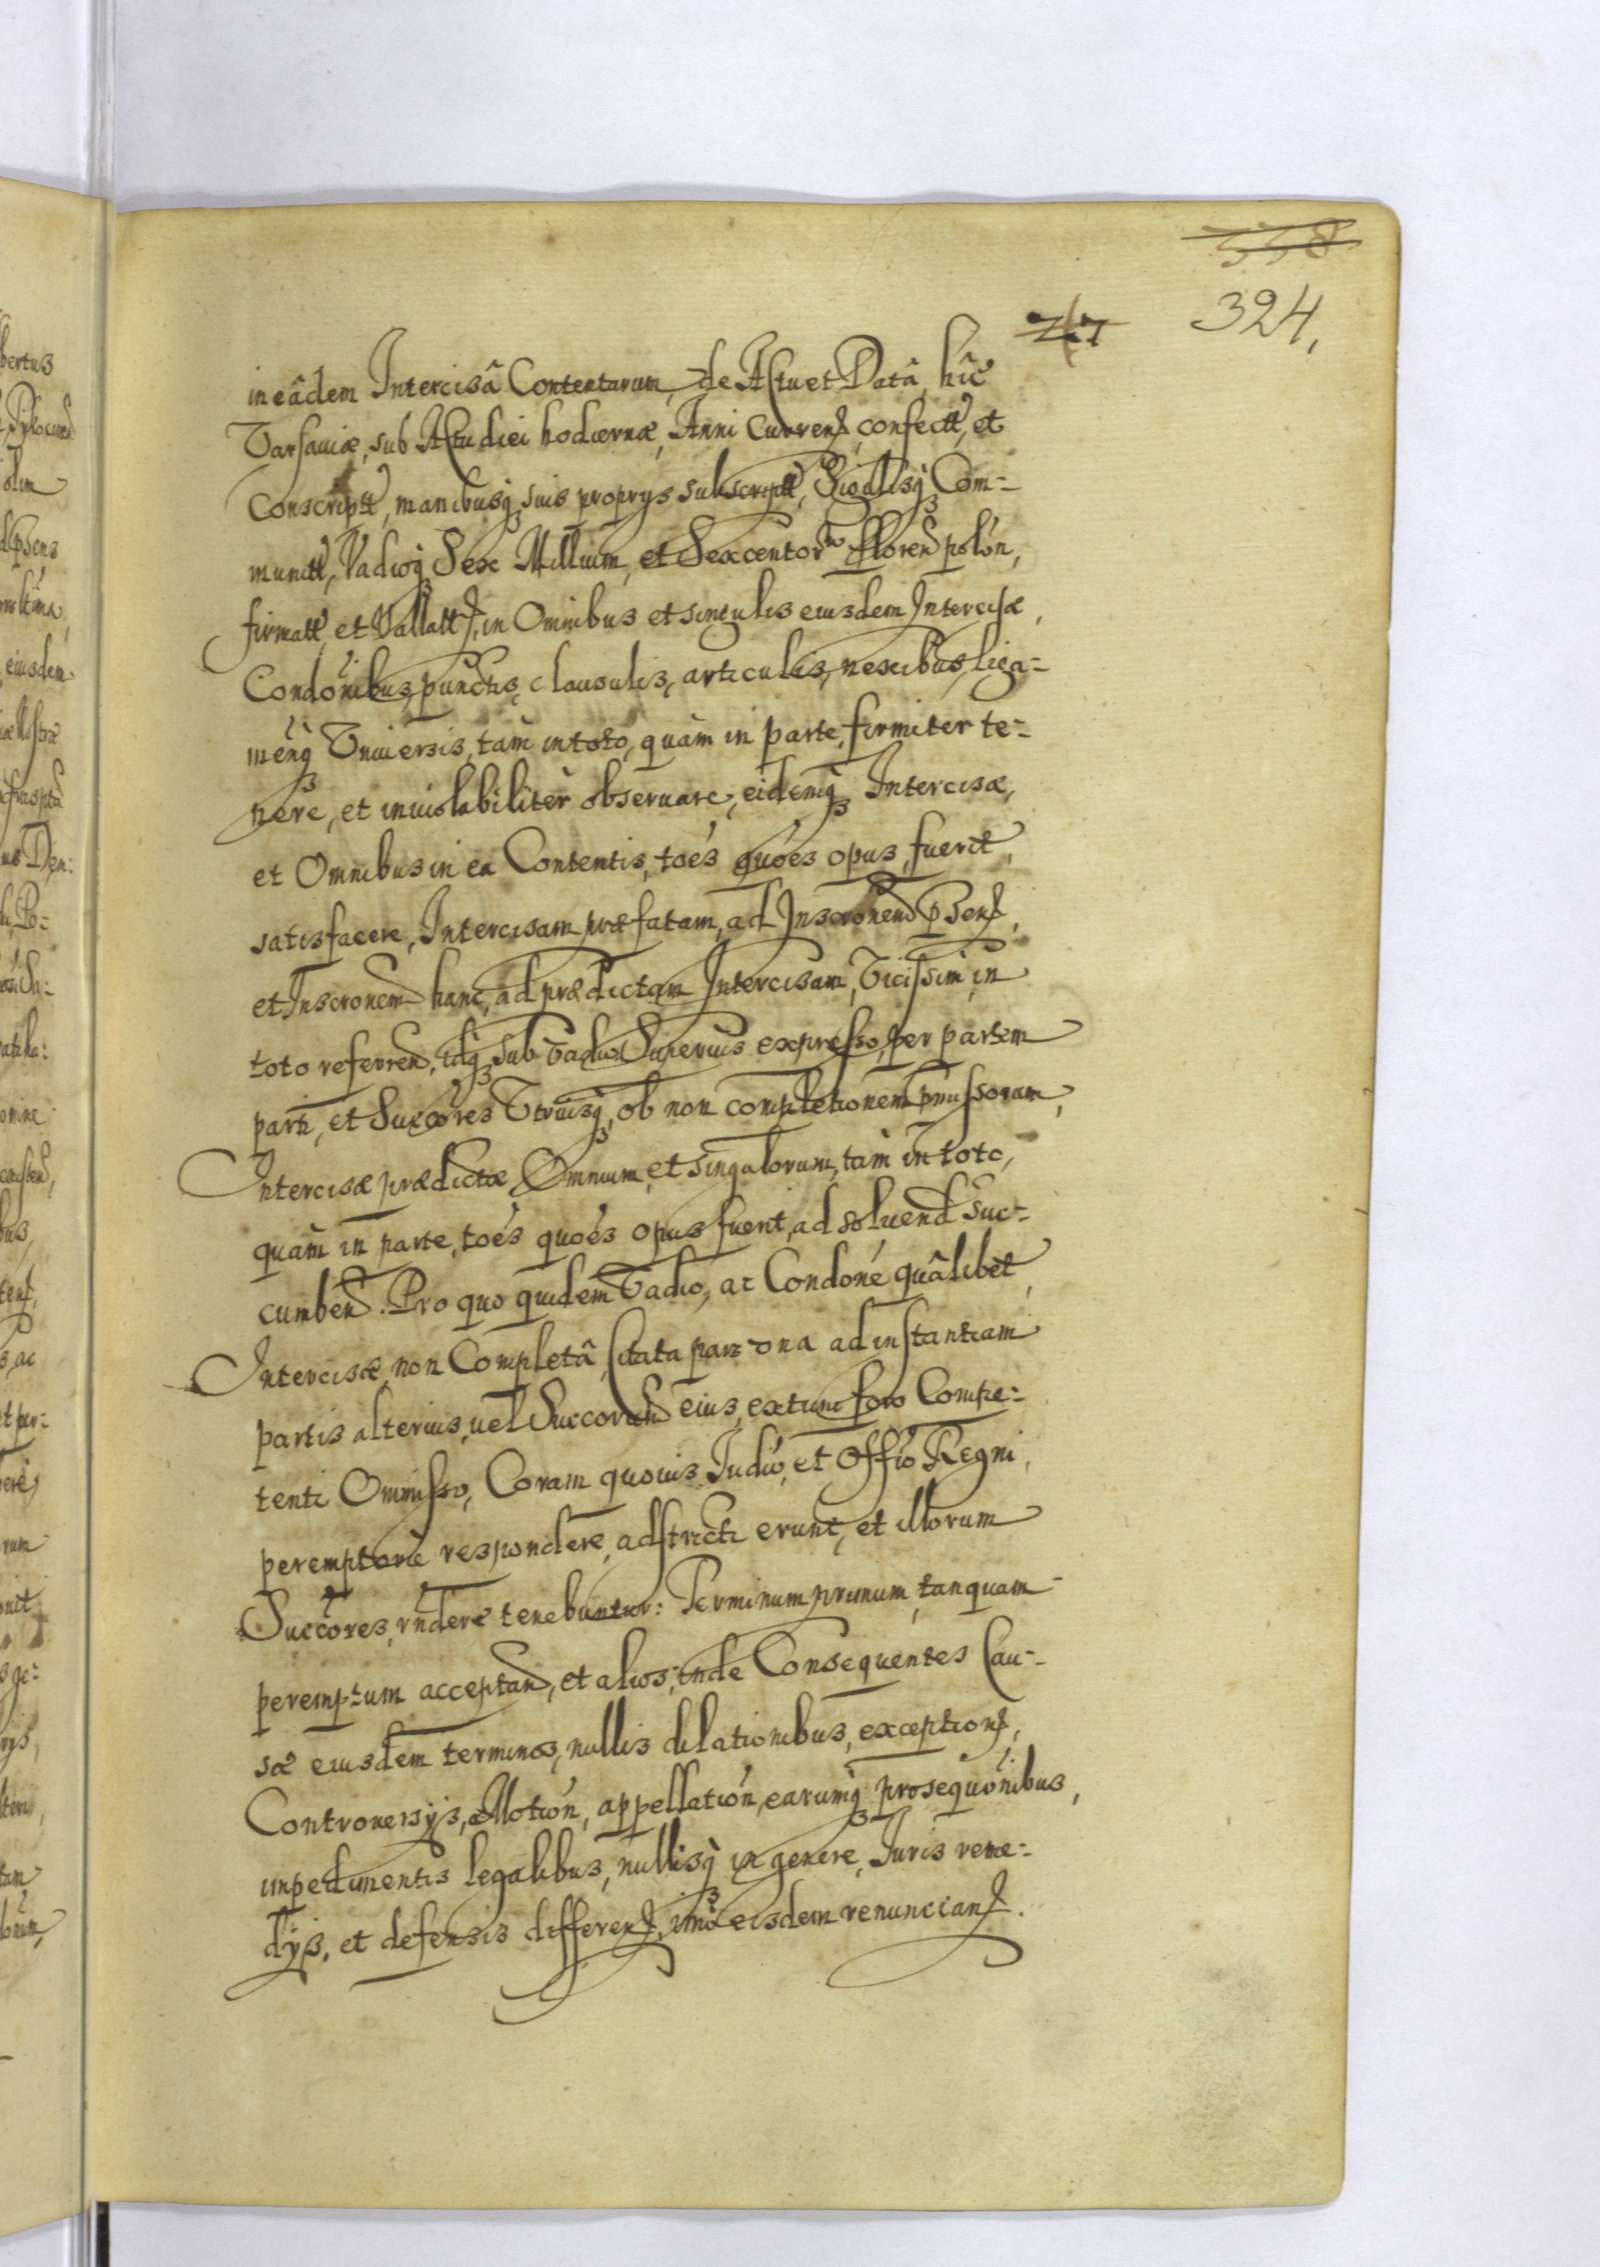 338
324,
in eâdem Intercisâ Contentarum, de Actu et Datâ hîc
Varsauiæ, sub Actu diei hodiernæ, Anni Curren, confectt, et
Conscriptt, manibusq suis proprys subscriptt, Sigillisq Com=
munitt, Vadioq Sex Millium, et Sexcentor floren polon,
firmatt, et Vallatt, in Omnibus et singulis eiusdem Intercisæ,
Condonibus, punctis, clausulis, articulis, nexibus, liga=
menq Vniuersis, tàm in toto, quàm in parte, firmiter te=
nere, et inuiolabiliter obseruare, eidemq Intercisæ,
et Omnibus in ea Contentis, toes quoes opus fuerit,
satisfacere, Intercisam præfatam, ad Inscronem pSen,
et Inscronem hanc, ad prædictam Intercisam, Vicissim, in
toto referren, idq sub Vadio Superius expresso, per partem
parti, et Succores Vtriusq, ob non completionem pmissoram,
Intercisæ prædictæ Omnium, et singulorum, tàm in toto,
quàm in parte, toes quoes opus fuerit, ad soluend suc=
cumben. Pro quo quidem Vadio, ac Condone quâlibet,
Intercisæ, non Completâ, Citata pars vna ad instantiam
partis alterius, uel Succorum eius, extunc foro Compe=
tenti Omisso, Coram quouis Judio, et Offio Regni,
peremptorie respondere, adstricti erunt, et illorum
Succores, rndere tenebuntur: Terminum primum, tanquam
peremptum acceptan, et alios, inde Consequentes Cau=
sæ eiusdem terminos, nullis dilationibus, exception,
Controuersys, Motion, appellation, earumq prosequonibus,
impedimentis legalibus, nullisq in genere, Juris reme=
dys, et defensis differen, imò eisdem renuncian.